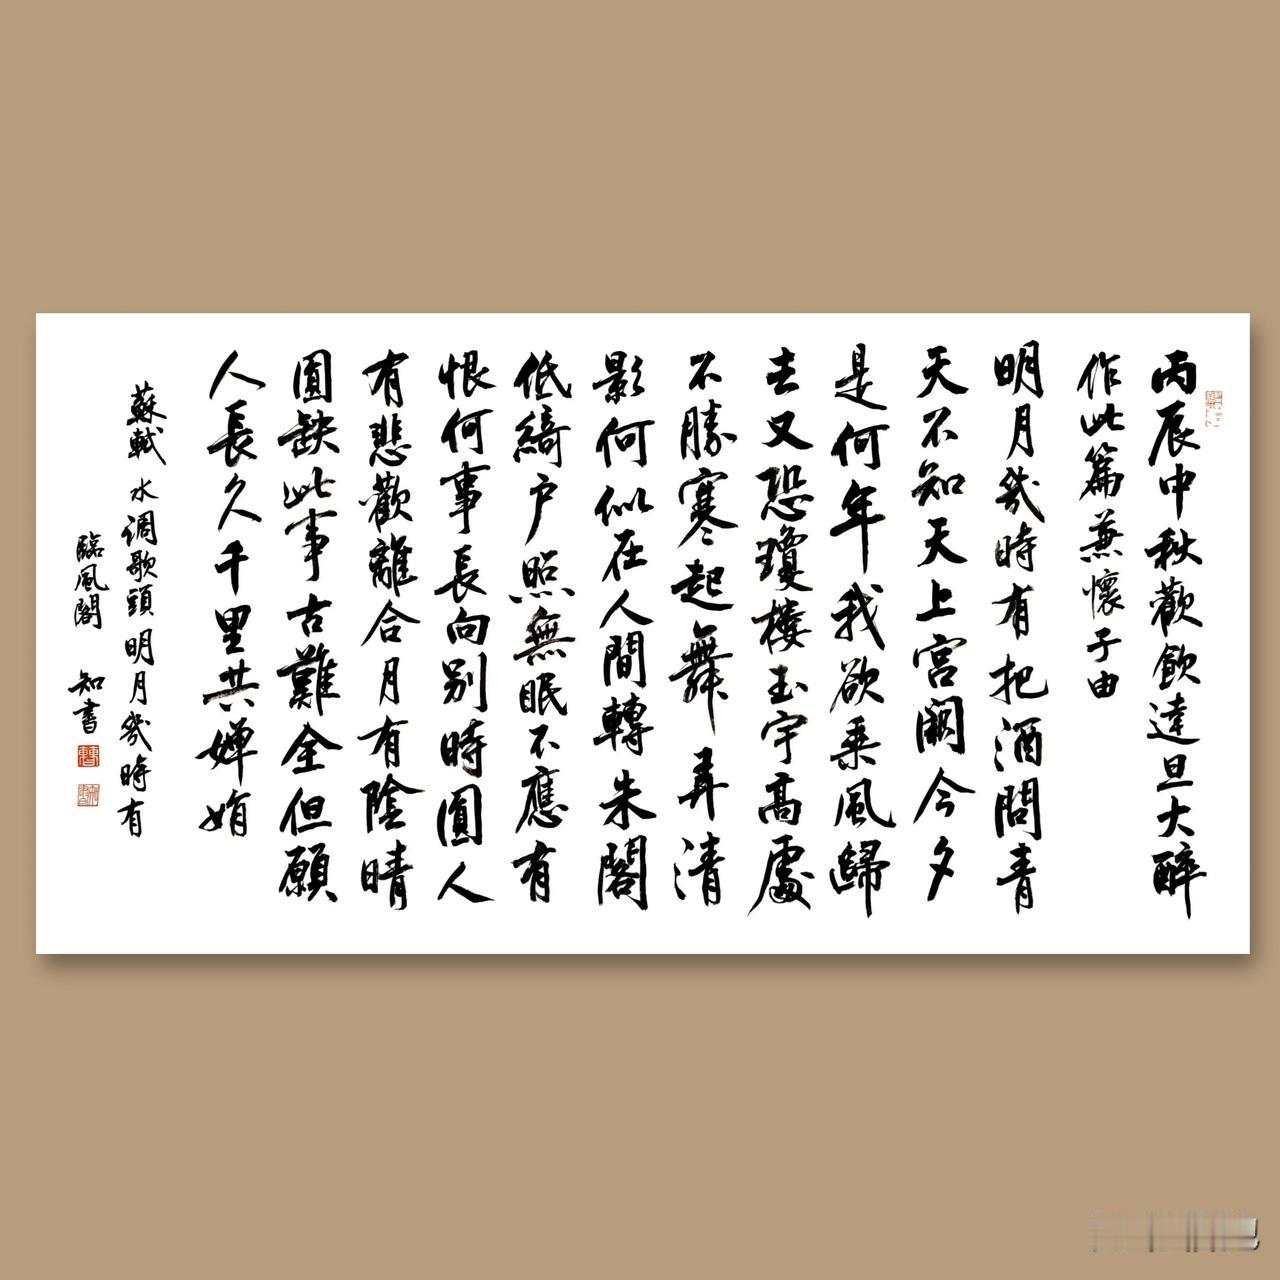 丙辰中秋歡飲達旦大醉
作此篇兼懷子由
明月幾時有把酒問青
天不知天上宮闕今夕
是何年我欲乘風歸
去又恐瓊樓玉宇高處
不勝寒起舞弄清
影何似在人間轉朱閣
低綺户照無眠不應有
恨何事長向别時圓人
有悲歡離合月有陰晴
圓缺此事古難全但願
人長久千里共嬋娟
蘇軾 水调歌頭 明月幾時有
臨風閣 知書